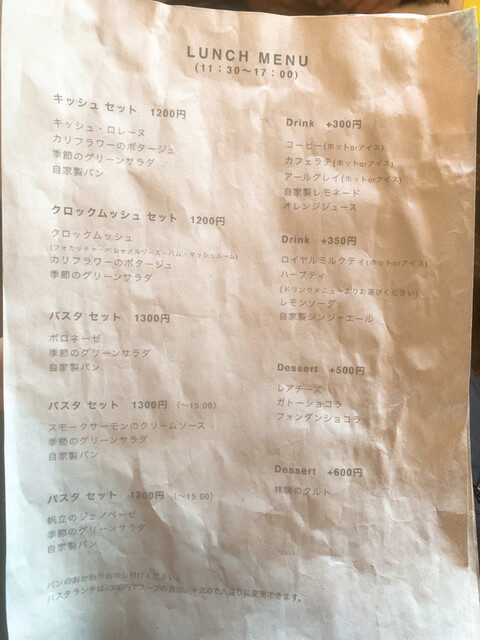 LUNCH MENU
(11：30〜17：00)
キッシュ セット　1200円
キッシュ・ロレーヌ
カリフラワーのポタージュ
季節のグリーンサラダ
自家製パン
クロックムッシュ セット　1200円
クロックムッシュ
(フォカッチャ・ベシャメルソース・ハム・マッシュルーム)
カリフラワーのポタージュ
季節のグリーンサラダ
パスタ セット　1300円
ボロネーゼ
季節のグリーンサラダ
自家製パン
パスタ セット　1300円　(〜15:00)
スモークサーモンのクリームソース
季節のグリーンサラダ
自家製パン
パスタ セット　1300円　(〜15:00)
帆立のジェノベーゼ
季節のグリーンサラダ
自家製パン
パンのおかわりお申し付けください。
パスタランチは+300円でスープの追加、+200で大盛りに変更できます。
Drink　+300円
コーヒー(ホットorアイス)
カフェラテ(ホットorアイス)
アールグレイ(ホットorアイス)
自家製レモネード
オレンジジュース
Drink　+350円
ロイヤルミルクティ(ホットorアイス)
ハーブティ
(ドリンクメニューよりお選びください)
レモンソーダ
自家製ジンジャエール
Dessert　+500円
レアチーズ
ガトーショコラ
フォンダンショコラ
Dessert　+600円
林檎のタルト